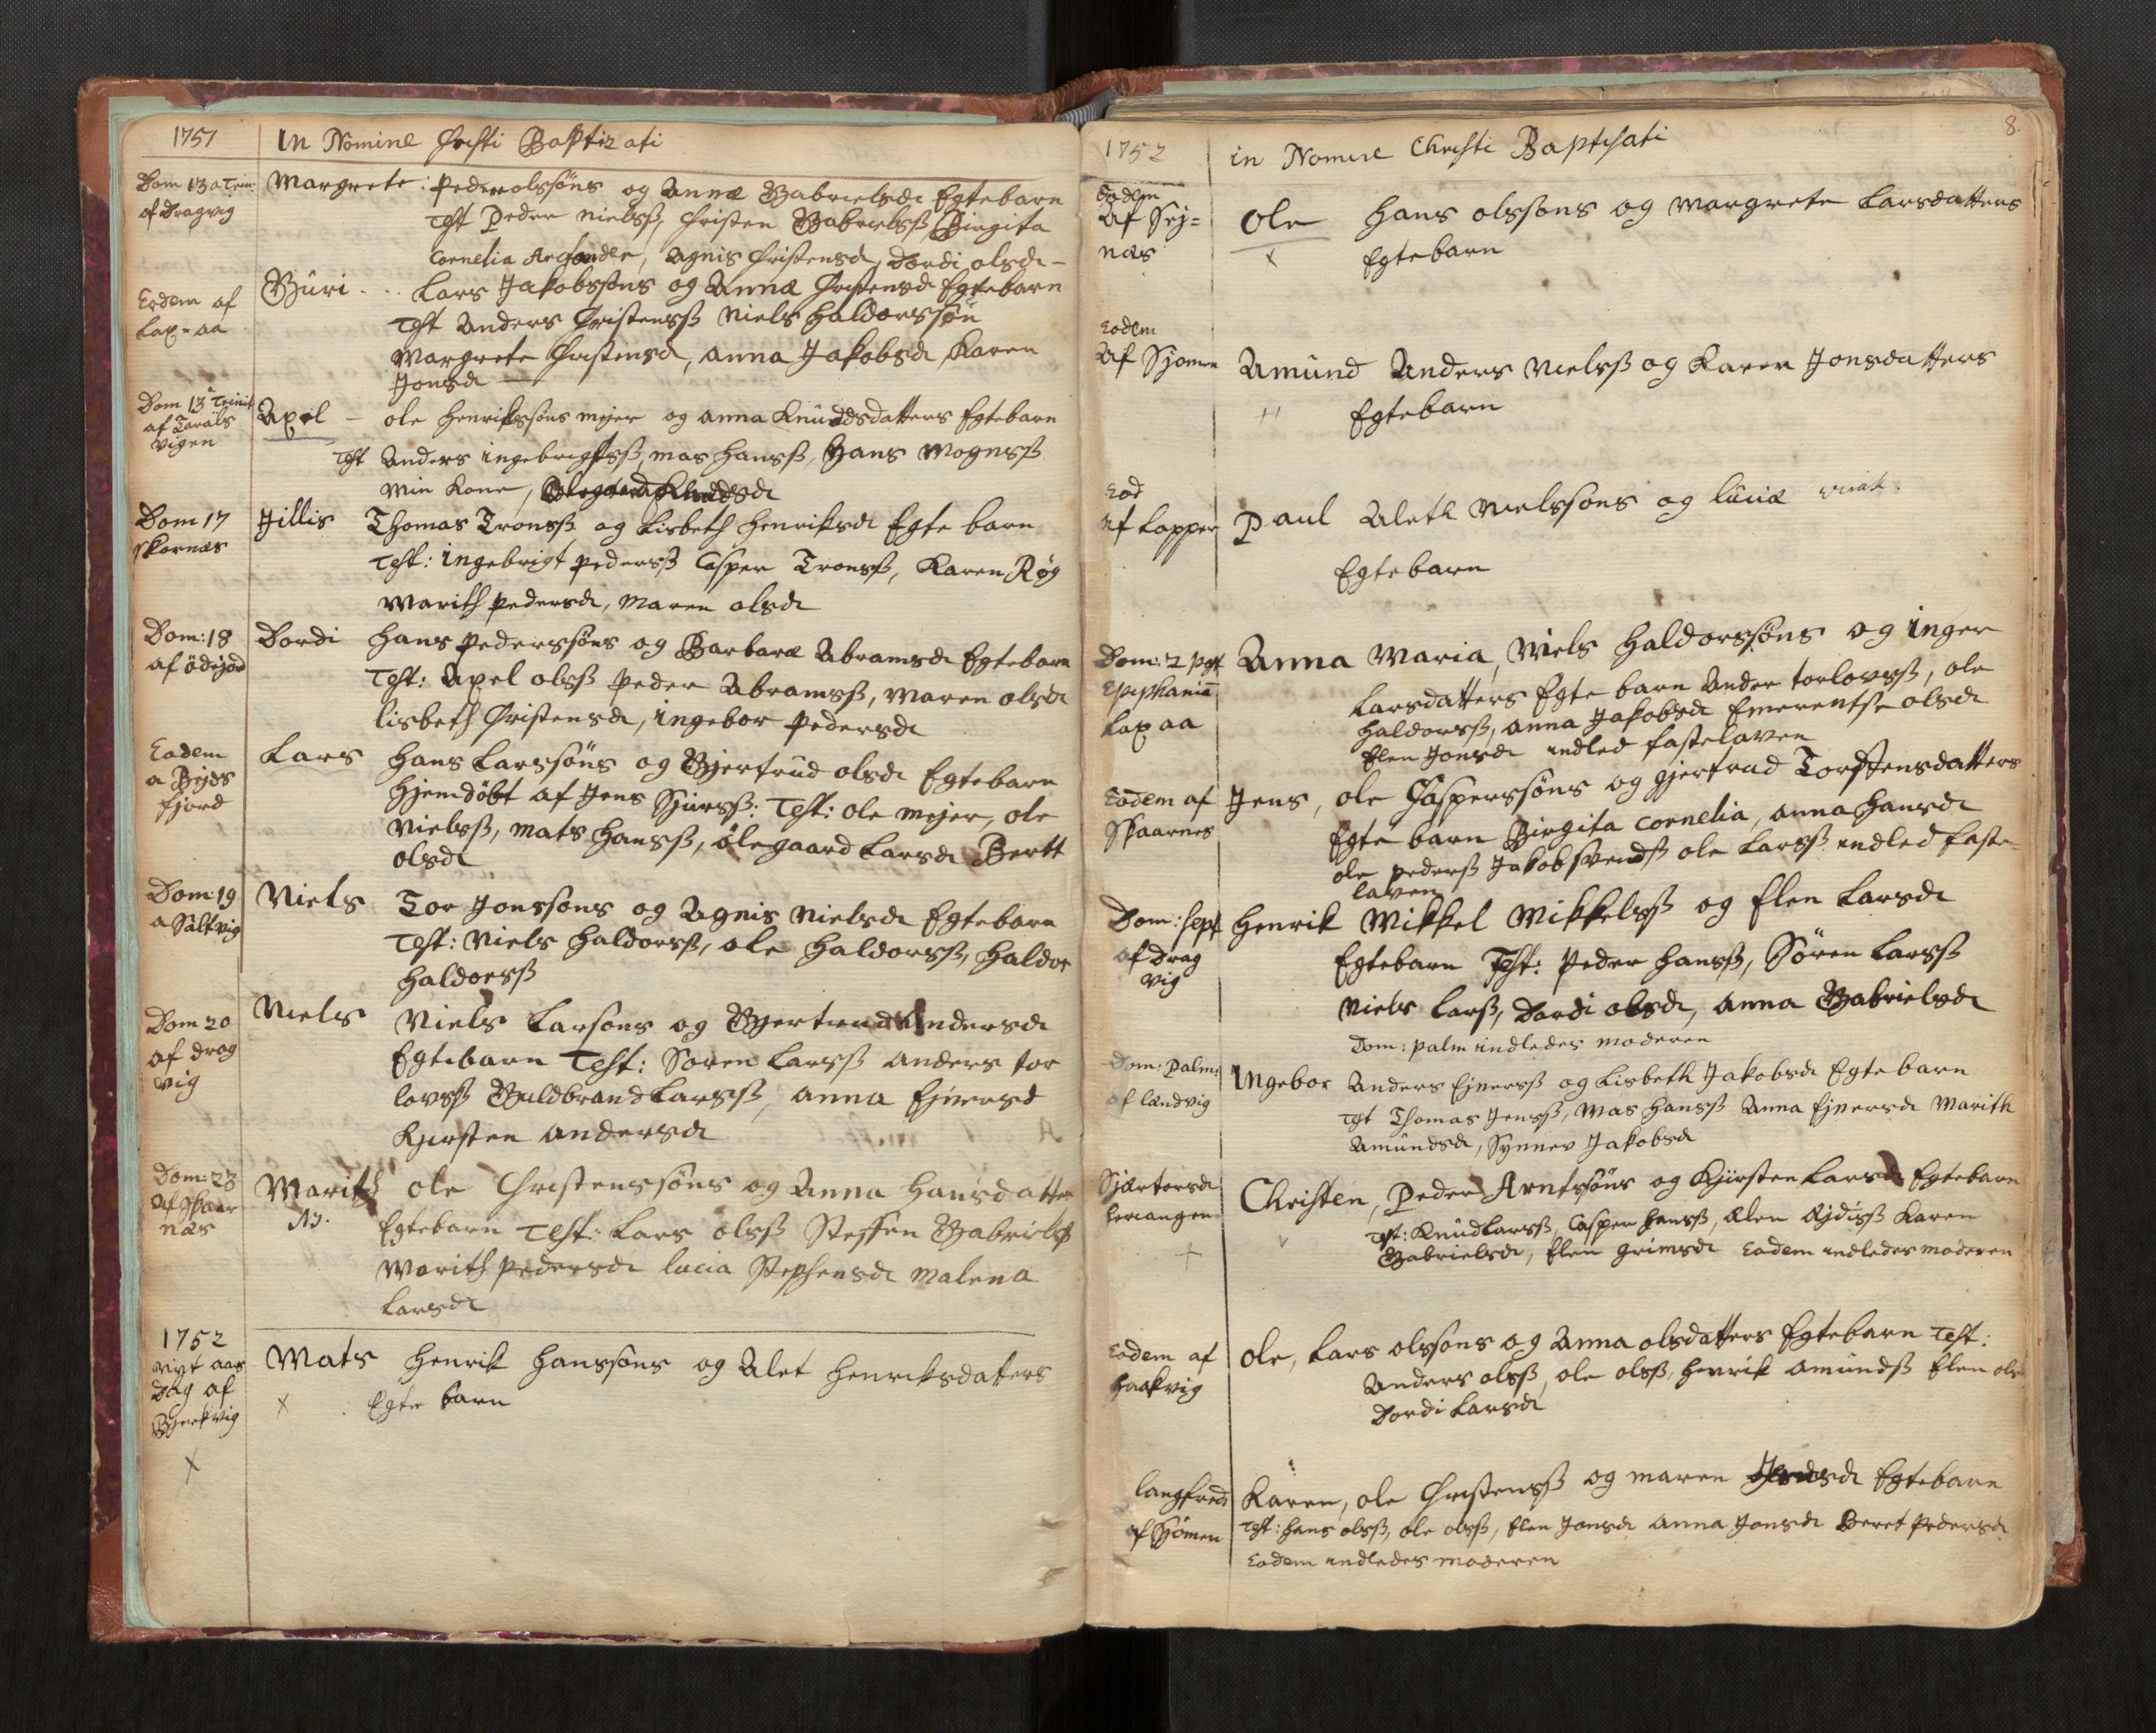 1751
In Nomine Christi Baptizati
Dom 13 a Trin:
af Dragvig
Margrete: Peder olssøns og Annæ Gabrielsdr Egtebarn
Test Peder Nielsß, Christen Gabrielsß, Birgita
Cornelia, Agnis Christensdr, Dordi olsdr
Eodem af
Lax-aa
Guri Lars Jakobssøns og Annæ Christensdr Egtebarn
Test Anders Christensß Niels Haldorssøn
Margrete Christensdr, Anna Jakobsdr Karen
Jonsdr
Dom 13 Trinit
af Tarals
vigen
Axel ole Henrikssøns mejer og Anna Knudsdatters Egtebarn
Test Anders ingebrigtsß, mas Hansß, Hans Mognsß
Min Kone, Olegaard Knudsdr
Dom 17
Skarnæs
Jillis Thomas Tronsß og Lisbeth Henriksdr Egte barn
Test: ingebrigt Pedersß Casper Tronsß, Karen Røg
Marith Pedersdr, Maren olsdr
Dom: 18
af ödejord
Dordi Hans Pederssøns og Barbaræ Abramsdr Egtebarn
Test: Axel olsß Peder Abramsß, Maren olsdr
Lisbeth Christensdr, ingebor Pedersdr
Eadem
a Bejs
fjord
Lars Hans Larssøns og Gjertrud olsdr Egtebarn
Hjemdöbt af Jens Sjursß: Test: ole mejer, ole
Nielsß, mats Hansß, ölegaard Larsdr Beritt
olsdr
Dom: 19
a Saltvig
Niels Tor Jonssøns og Agnis Nielsdr Egtebarn
Test: Niels Haldorsß, ole Haldorsß, Haldor
Haldorsß
Dom 20
af drag
vig
Niels Niels Larsøns og Gjertrud Andersdr
Egtebarn Test: Søren Larsß Anders tor
lovsß Guldbrand Larsß, Anna Ejnersd
Kjersten Andersdr
Dom: 23
af Skaar
næs
Marith ole Christenssøns og Anna Hansdatter
Egtebarn Test: Lars olsß Steffen Gabrielsß
Marith Pedersdr Lucia Stephensdr Malena
Larsdr
1752
Nyt aars
Dag af
Bjerkvig
X
Mats Henrik Hanssøns og Alet Henriksdatters
X Egte barn
8.
1752
in Nomine Christi Baptisati
Eodem
Af Sej=
næs
Ole Hans olssøns og Margrete Larsdatters
X Egtebarn
Eodem
Af Sjomen
Amund Anders Nielsß og Karen Jonsdatters
Egtebarn
Eod
Af Lapper
Paul Aleth Nielssøns og Luciæ
Egtebarn
Dom: 2 post
Epiphaniæ
Lax aa
Anna Maria, Niels Haldorssøns og inger
Larsdatters Egte barn Ander torlovsß, ole
Haldorsß, Anna Jakobsdr Emerentse olsdr
Elen Jonsdr indled fastelaven
Eodem af
Skaarnes
Jens, ole Casperssøns og Gjertrud Torstensdatters
Egte barn Birgita Cornelia, Anna Hansdr
ole Pedersß Jakob Svendsß ole Larsß indled faste-
laven
Dom: Sept
af Drag
vig
Henrik Mikkel Mikkelsß og Elen Larsdr
Egtebarn Test: Peder Hansß, Sören Larsß
Niels Larsß, Dordi olsdr, Anna Gabrielsdr
Dom: palm indledes moderen
Dom: Palm:
af Lændvig
Ingebor Anders Ejnersß og Lisbeth Jakobsdr Egte barn
Test Thomas Jensß, Mas Hansß Anna Ejnersdr Marith
Amundsdr, Synnev Jakobsdr
Skiertorsdr
Leerangen
+
Christen, Peder Arntssøns og Kjirsten Larsdr Egtebarn
Test: Knud Larsß, Casper Hansß, Karen
Gabrielsdr, Elen Grimsdr Eadem indledes moderen
Eodem af
Haakvig
Ole, Lars olssøns og Anna olsdatters Egtebarn Test:
Anders olsß, ole olsß, Henrik Amundsß Elen ols
Dordi Larsdr
Langfred
af Sjömen
Karen, ole Christensß og Maren Egtebarn
Test: Hans olsß, ole olsß, Elen Jonsdr Anna Jonsdr Beret Pedersdr
Eadem indledes moderen